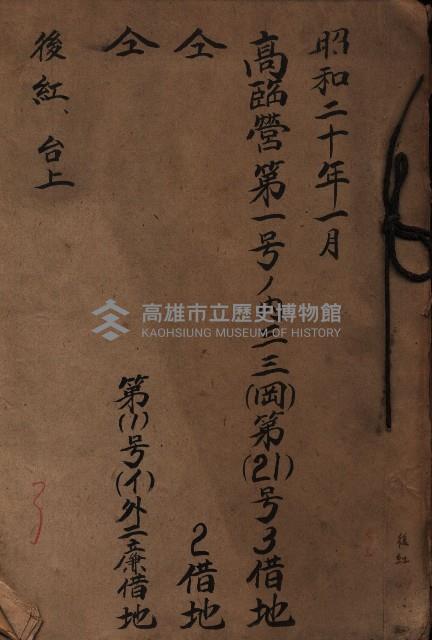 昭和二十年一月
高臨營第一号ノ内二三(岡)第(21)号3借地
仝 2借地
仝 第(1)号(イ)外二廉借地
後紅、台上
高雄市立歷史博物館
KAOHSIUNG MUSEUM OF HISTORY
後紅